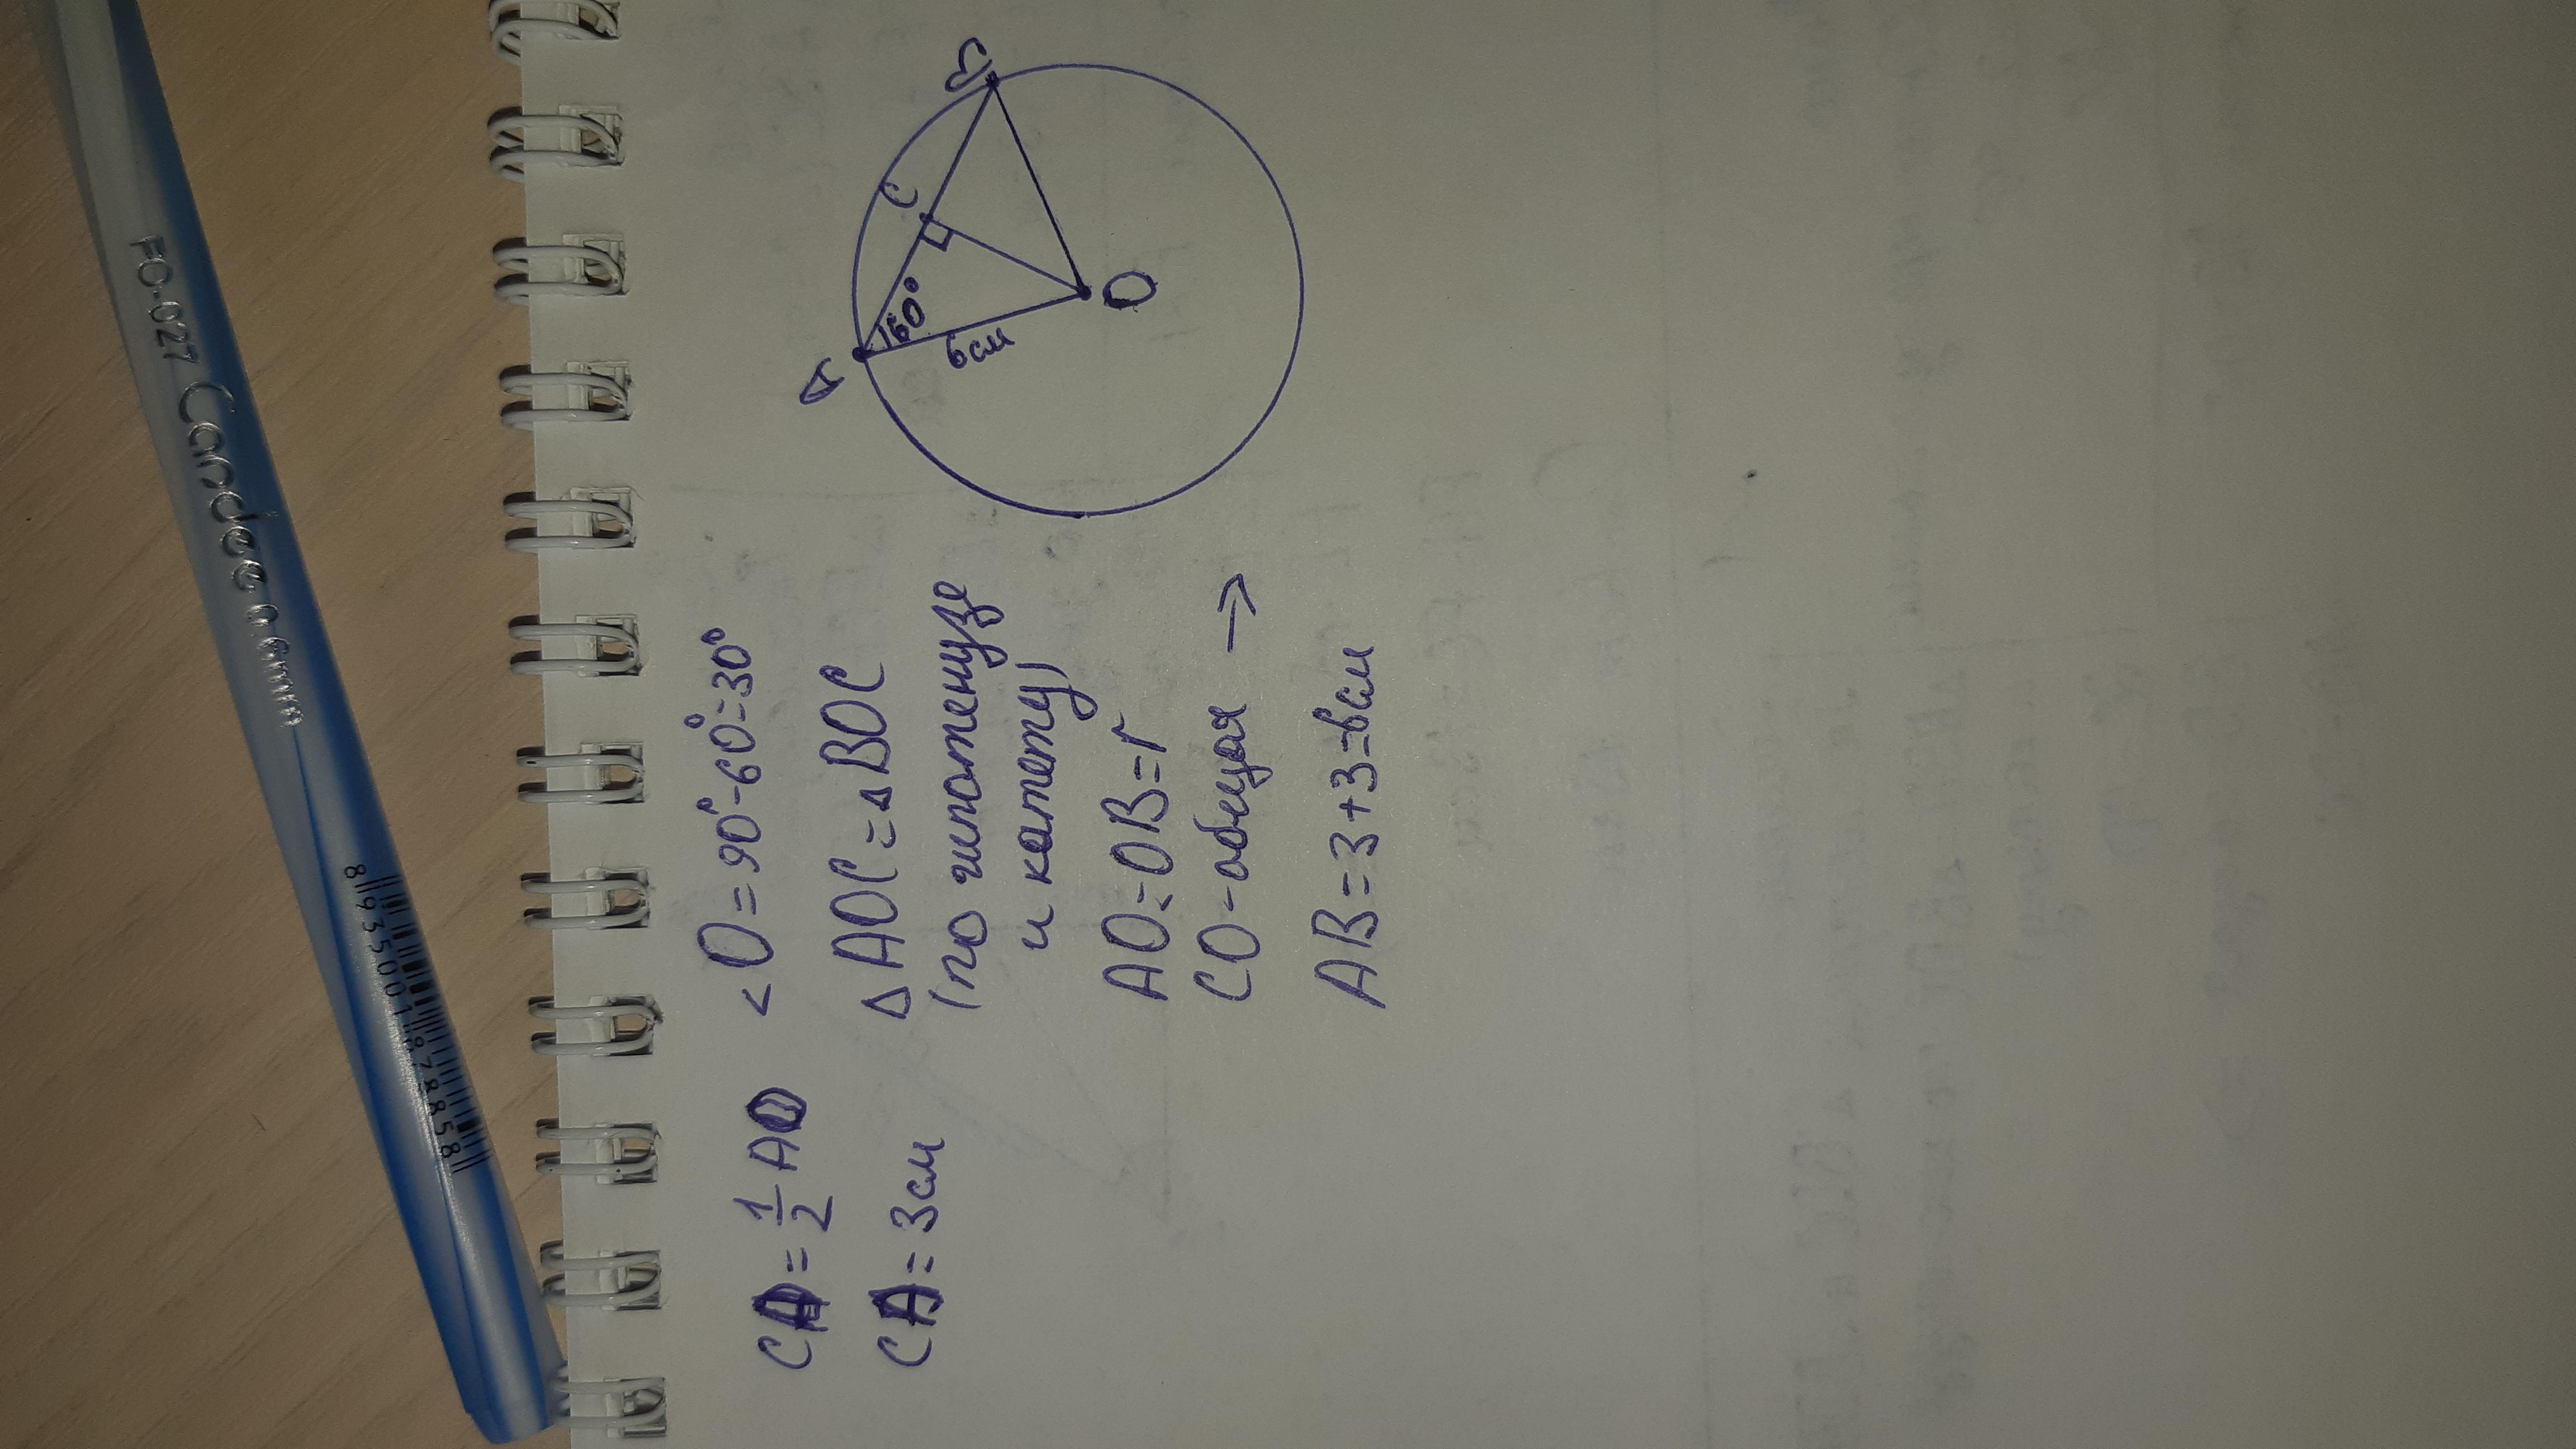 CA = 1/2 AO
CA = 3см
< O = 90° - 60° = 30°
Δ AOC = Δ BOC
(по гипотенузе
и катету)
AO = OB = r
CO - общая →
AB = 3 + 3 = 6см
A
B
C
60°
6см
O
FO-027 Candee 0.6mm
8 935001 878858